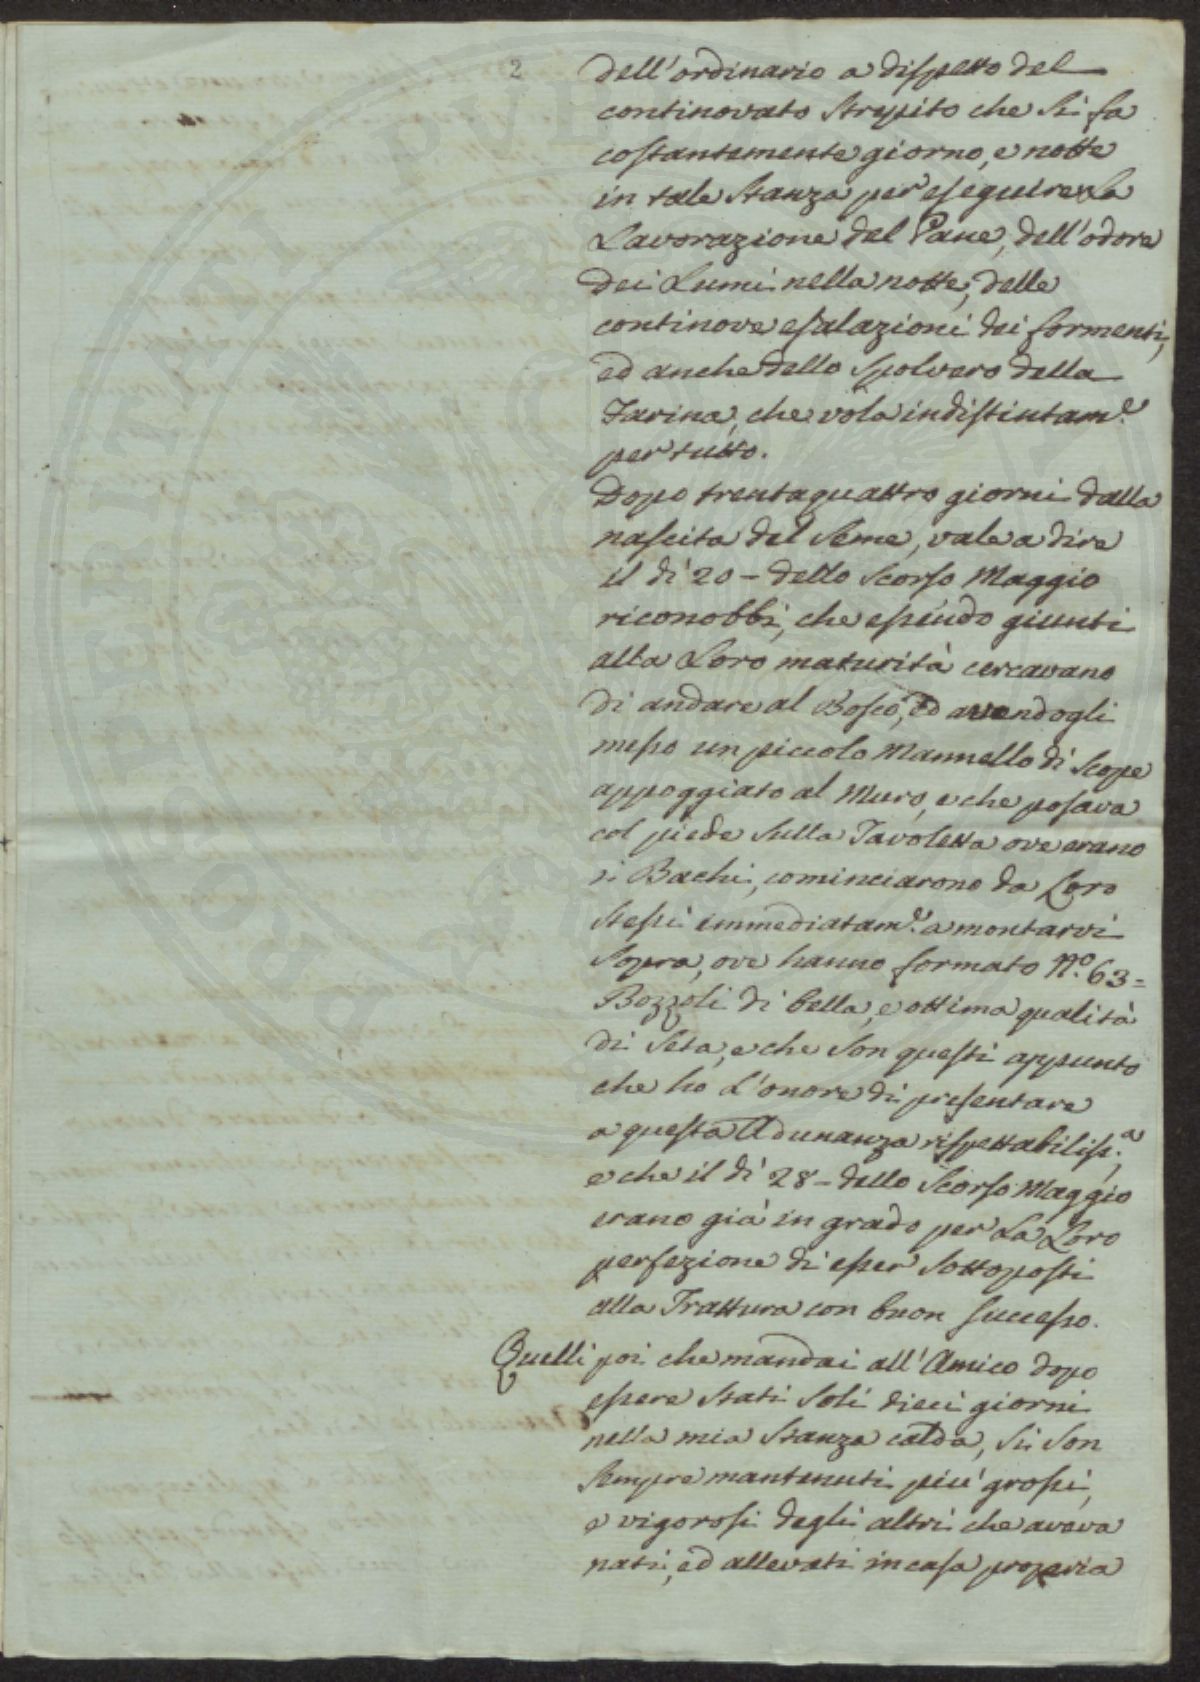 2
dell'ordinario a dispetto del
continovato strepito che si fa
costantemente giorno, e notte
in tale stanza per eseguire la
Lavorazione del Pane, dell'odore
dei Lumi nella notte, delle
continove esalazioni dei formenti,
ed anche dello spolvero della
Farina, che vola indistintam.e
per tutto.
Dopo trentaquattro giorni dalla
nascita del seme, vale a dire
il dì 20 - dello scorso Maggio
riconobbi, che essendo giunti
alla Loro maturità cercavano
di andare al Bosco, ed avendogli
messo un piccolo Mannello di scope
appoggiato al Muro, e che posava
col piede sulla Tavoletta ove erano
i Bachi, cominciarono da Loro
stessi immediatam.e a montarvi
sopra, ove hanno formato N.o 63 =
Bozzoli di bella, e ottima qualità
di seta, e che son questi appunto
che ho L'onore di presentare
a questa Adunanza rispettabiliss.a,
e che il dì 28 - dello scorso Maggio
erano già in grado per La Loro
perfezione di esser sottoposti
alla Trattura con buon successo.
Quelli poi che mandai all'Amico dopo
essere stati soli dieci giorni
nella mia stanza calda, si son
sempre mantenuti più grossi,
e vigorosi degli altri che aveva
nati, ed allevati in casa propria